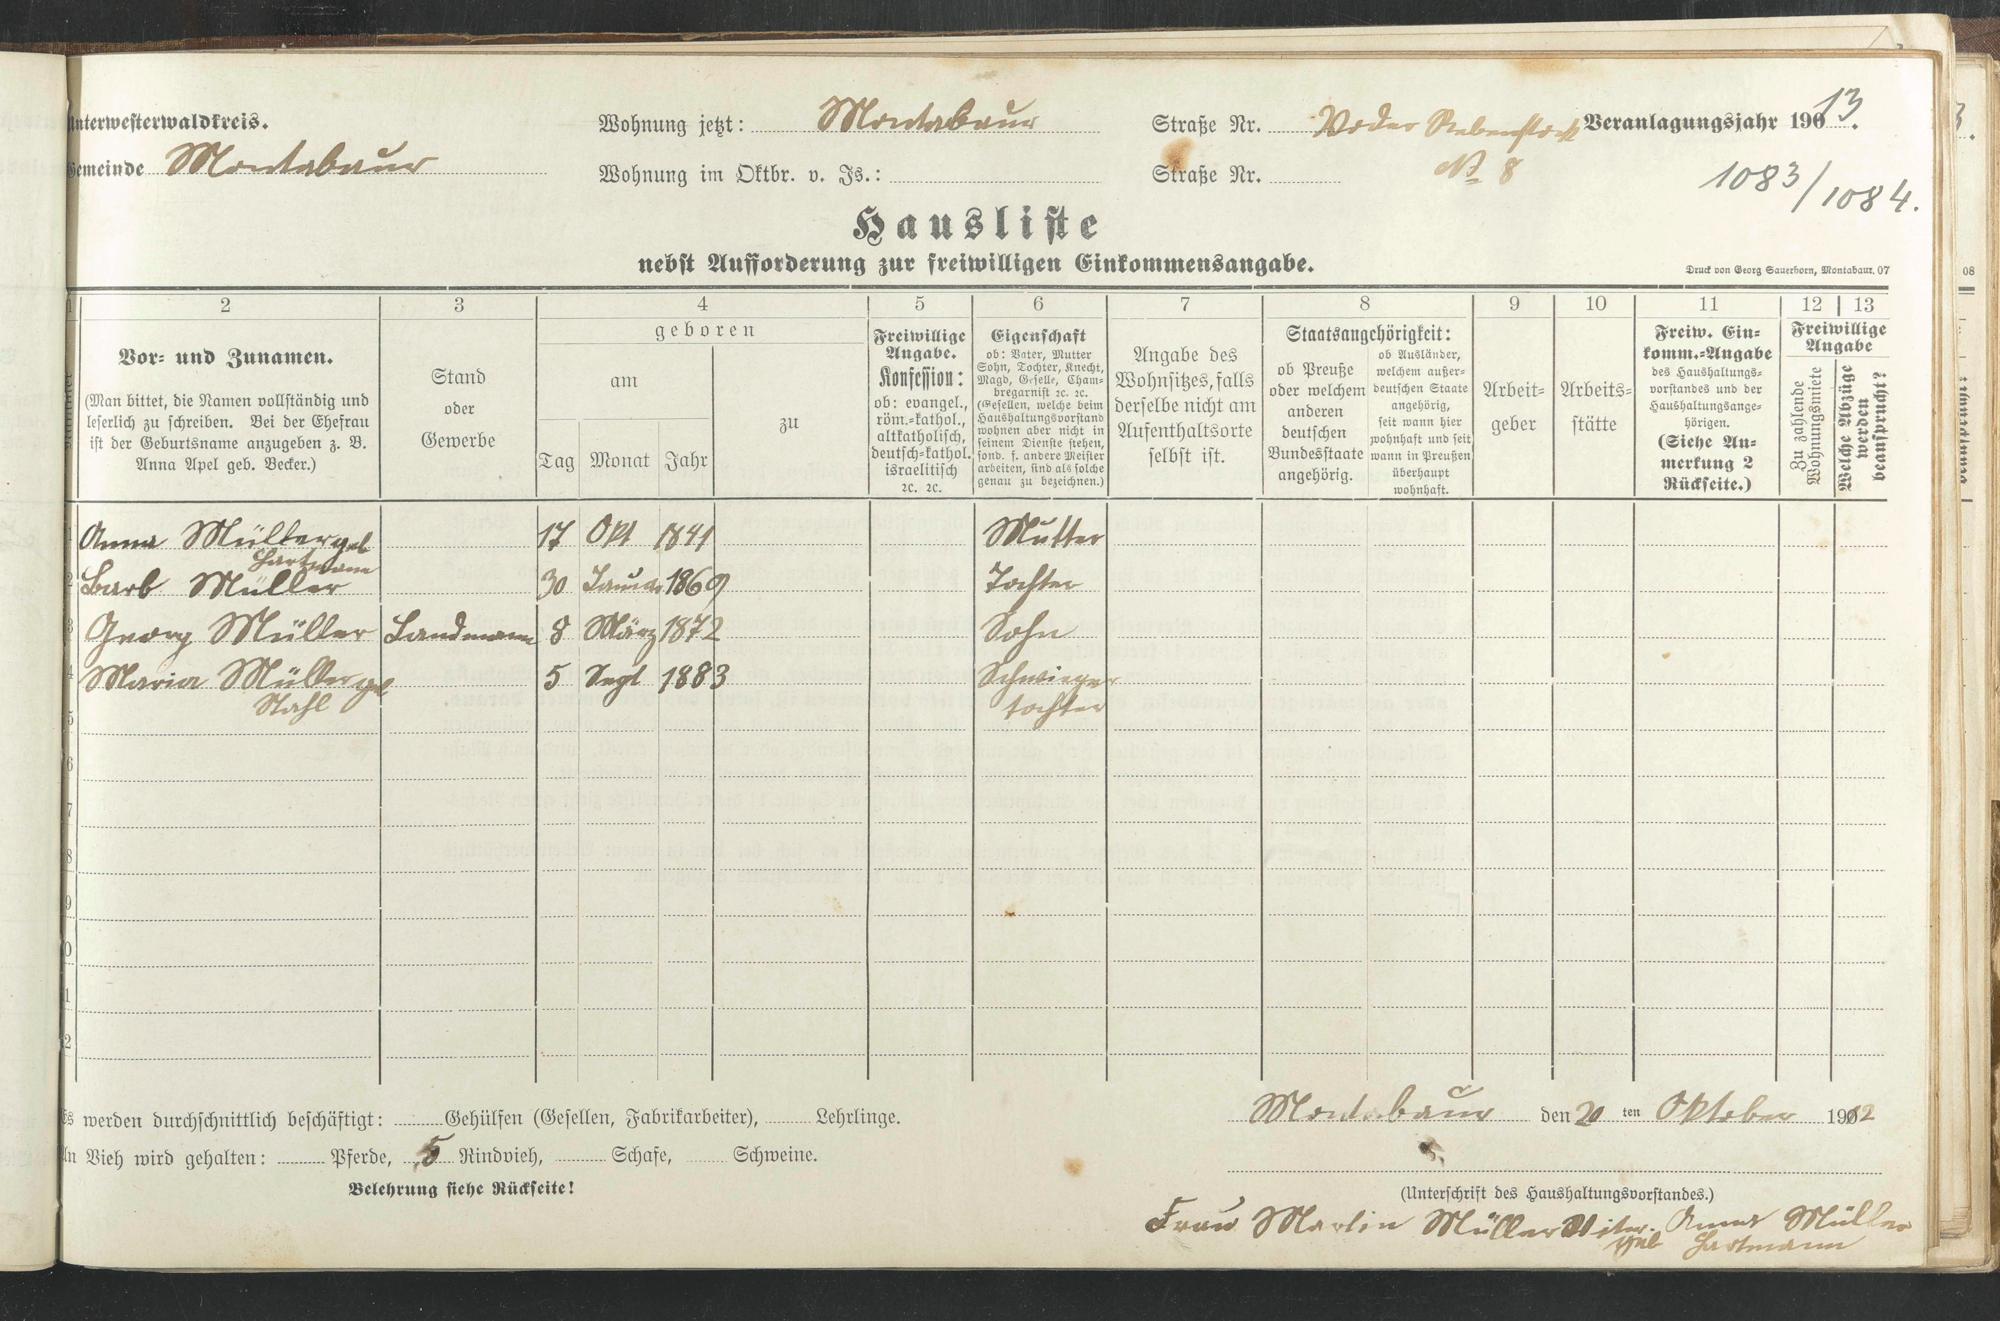 Unterwesterwaldkreis.
Wohnung jetzt: Montabaur
Straße Nr. Voder Rebenstock
Veranlagungsjahr 1913.
Gemeinde Montabaur
Wohnung im Oktbr. v. Js.:
Straße Nr.
№ 8
1083/1084.
Hausliste
nebst Aufforderung zur freiwilligen Einkommensangabe.
Druck von Georg Sauerborn, Montabaur. 07
08
1 2 3 4 5 6 7 8 9 10 11 12 13
Vor- und Zunamen.
(Man bittet, die Namen vollständig und
leserlich zu schreiben. Bei der Ehefrau
ist der Geburtsname anzugeben z. B.
Anna Apel geb. Becker.)
Stand
oder
Gewerbe
geboren
am
Tag Monat Jahr
zu
Freiwillige
Angabe.
Konfession:
ob: evangel.,
röm.-kathol.,
altkatholisch,
deutsch-kathol.
israelitisch
ꝛc. ꝛc.
Eigenschaft
ob: Vater, Mutter
Sohn, Tochter, Knecht,
Magd, Geselle, Cham-
bregarnist ꝛc. ꝛc.
(Gesellen, welche beim
Haushaltungsvorstand
wohnen aber nicht in
seinem Dienste stehen,
sond. f. andere Meister
arbeiten, sind als solche
genau zu bezeichnen.)
Angabe des
Wohnsitzes, falls
derselbe nicht am
Aufenthaltsorte
selbst ist.
Staatsangehörigkeit:
ob Preuße
oder welchem
anderen
deutschen
Bundesstaate
angehörig.
ob Ausländer,
welchem außer-
deutschen Staate
angehörig,
seit wann hier
wohnhaft und seit
wann in Preußen
überhaupt
wohnhaft.
Arbeit-
geber
Arbeits-
stätte
Freiw. Ein-
komm.-Angabe
des Haushaltungs-
vorstandes und der
Haushaltungsange-
hörigen.
(Siehe An-
merkung 2
Rückseite.)
Freiwillige
Angabe
Zu zahlende
Wohnungsmiete
Welche Abzüge
werden
beansprucht?
1 Anna Müller geb 17 Okt 1841 Mutter
Hartmann
2 Barb Müller 30 Janua 1869 Tochter
3 Georg Müller Landmann 8 März 1872 Sohn
4 Maria Müller ge 5 Sept 1883 Schwieger
Stahl tochter
5
6
7
8
9
0
1
2
Es werden durchschnittlich beschäftigt: Gehülfen (Gesellen, Fabrikarbeiter), Lehrlinge.
An Vieh wird gehalten: Pferde, 5 Rindvieh, Schafe, Schweine.
Belehrung siehe Rückseite!
Montabaur den 20 ten Oktober 1912
(Unterschrift des Haushaltungsvorstandes.)
Frau Martin Müller Witw. Anna Müller
geb Hartmann